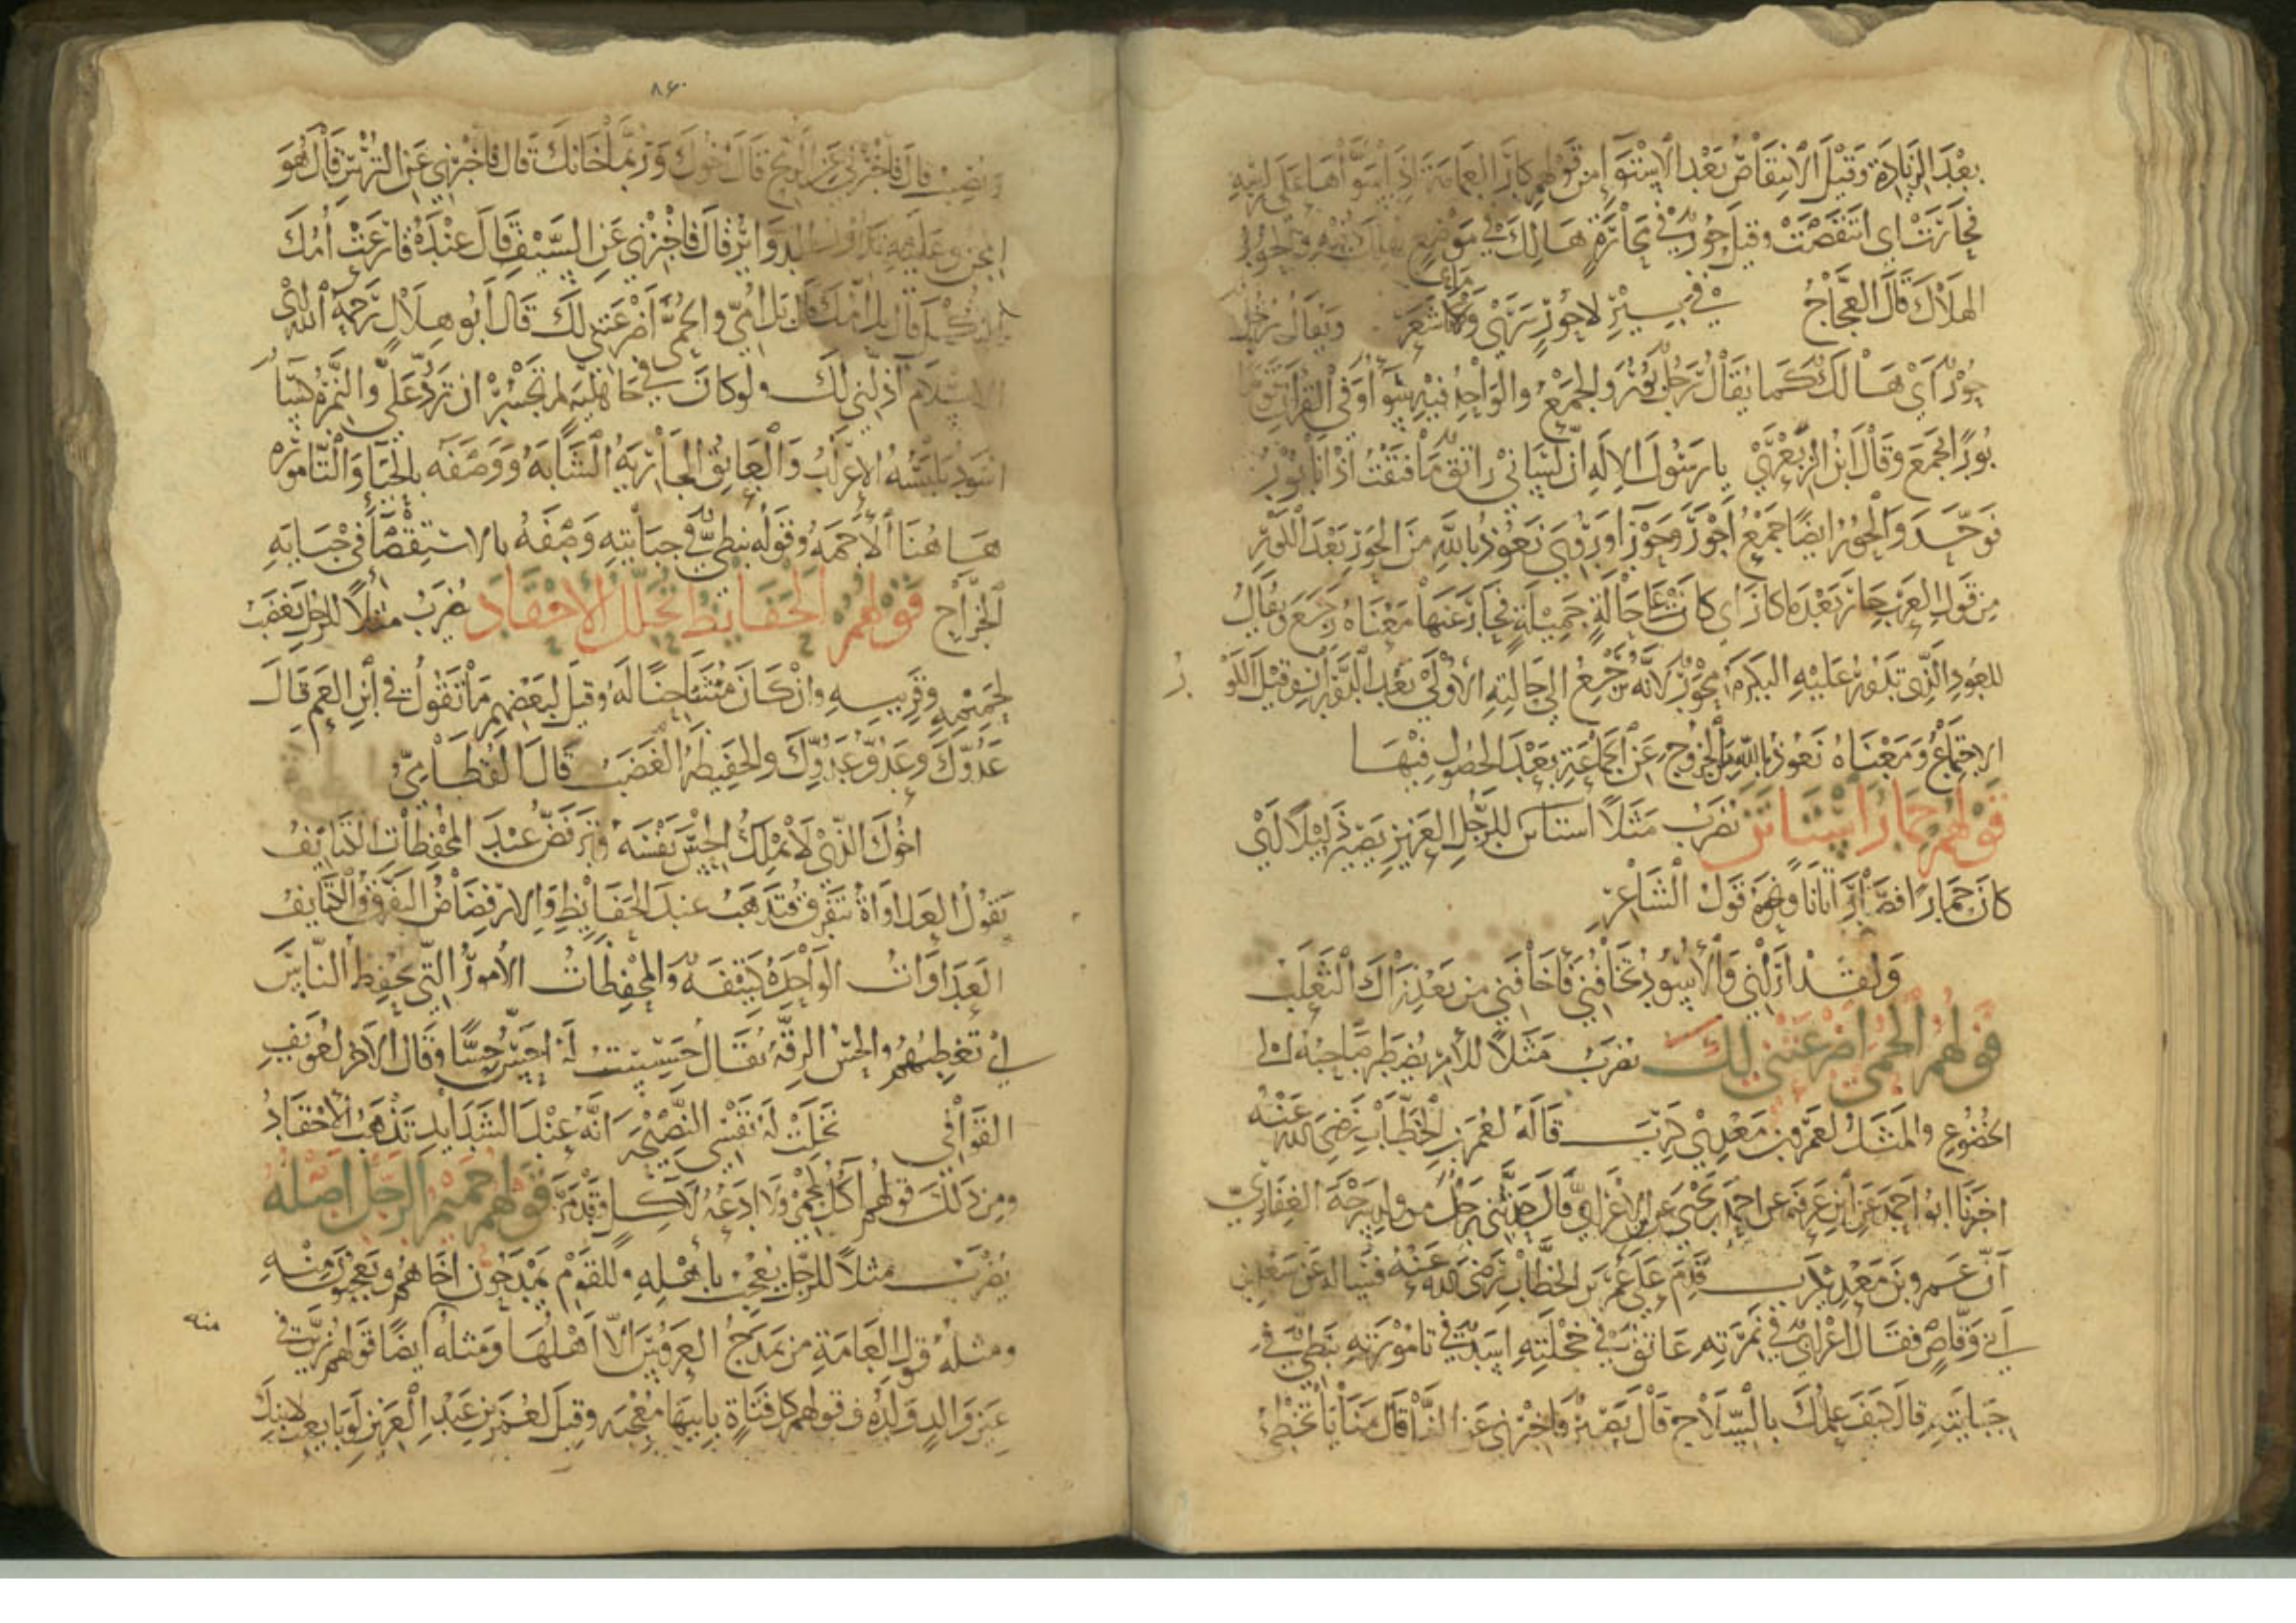 بعد الزيادة وقبل الانتقاض بعد الاستوا من قولهم كار العمامة اذا سواها على راسه
فحارت اي انتقضت وقيل حور في محارة هالك في موضع يهلك فيه والحور
الهلاك قال العجاج في بير لا حور سرى وما شعر ويقال رجل
حور اي هالك كما يقال رجل بور والجمع والواحد فيه سوا وفي القرآن قوما
بورا فجمع وقال ابن الزبعرى يا رسول الاله ان لساني راتق ما فتقت اذ انا بور
فوحد والحور ايضا جمع احور وحورا وروي نعوذ بالله من الحور بعد الكور
من قول العرب حار بعد ما كار اي كان على حالة جميلة فحار عنها معناه رجع ويقال
للعود الذي تدور عليه البكرة محور لانه يرجع الى حالته الاولى بعد الدوران وقيل الكور
الاجتماع ومعناه نعوذ بالله من الخروج عن الجماعة بعد الحصول فيها
قولهم حمار استاتن يضرب مثلا للرجل العزيز يصير ذليلا اي
كان حمارا فصار اتانا ونحوه قول الشاعر
ولقد اراني والاسود تخافني فاخافني من بعد ذاك الثعلب
قولهم الحمى اضرعتني لك يضرب مثلا للامر يضطر صاحبه الى
الخضوع والمثل لعمرو بن معدي كرب قاله لعمر بن الخطاب رضي الله عنه
اخبرنا ابو احمد عن ابن عرفة عن احمد بن يحيى عن ابن الاعرابي قال حدثني رجل من ولد الغفاري
ان عمرو بن معدي كرب قدم على عمر بن الخطاب رضي الله عنه فسأله عن سعد بن
ابي وقاص فقال اعرابي في نمرته عاتق في حجلته اسد في تامورته نبطي في
جبايته قال كيف علمك بالسلاح قال بصير قال فاخبرني عن النبل قال منايا تخطئ
٨٤
وتصيب قال فاخبرني عن الرمح قال اخوك وربما خانك قال فاخبرني عن الترس قال هو
المجن وعليه تدور الدواير قال فاخبرني عن السيف قال عنده قارعت امك
الثكل قال بل امك قال بل امي والحمى اضرعتني لك قال ابو هلال رحمه الله اي
الاسلام اذلني لك ولو كان في جاهلية لم تجسر ان ترد علي والنمرة كسا
اسود يلبسه الاعراب والعاتق الجارية الشابة ووصفه بالحيا والتامورة
هاهنا الاجمة وقوله نبطي في جبايته وصفه بالاستقصا في جباية
الخراج قولهم الحفايظ تحلل الاحقاد يضرب مثلا للرجل يغضب
لحميمه وقريبه وان كان مشاحنا له وقيل لبعضهم ما تقول في ابن العم قال
عدوك وعدو عدوك والحفيظة الغضب قال القطامي
اخوك الذي لا تملك الحس نفسه وترفض عند المحفظات الكتايف
يقول العداواة تتفرق فتذهب عند الحفايظ والارفضاض التفرق والكتايف
العداوات الواحدة كتيفة والمحفظات الامور التي تحفظ الناس
اي تغضبهم والحس الرقة يقال حسست له احس حسا وقال الاخر لعويف
القوافي نخلت له نفسي النصيحة انه عند الشدايد تذهب الاحقاد
ومن ذلك قولهم آكل لحمي ولا ادعه لآكل وقد مر قولهم حميم الرجل اصله
يضرب مثلا للرجل يعجب باهله وللقوم يمدحون اخاهم ويعجبون منه
منه
ومثله قول العامة من يمدح العروس الا اهلها ومثله ايضا قولهم زين في
عين والد ولده وقولهم كل فتاة بابيها معجبة وقيل لعمر بن عبد العزيز لو بايعت لابنك